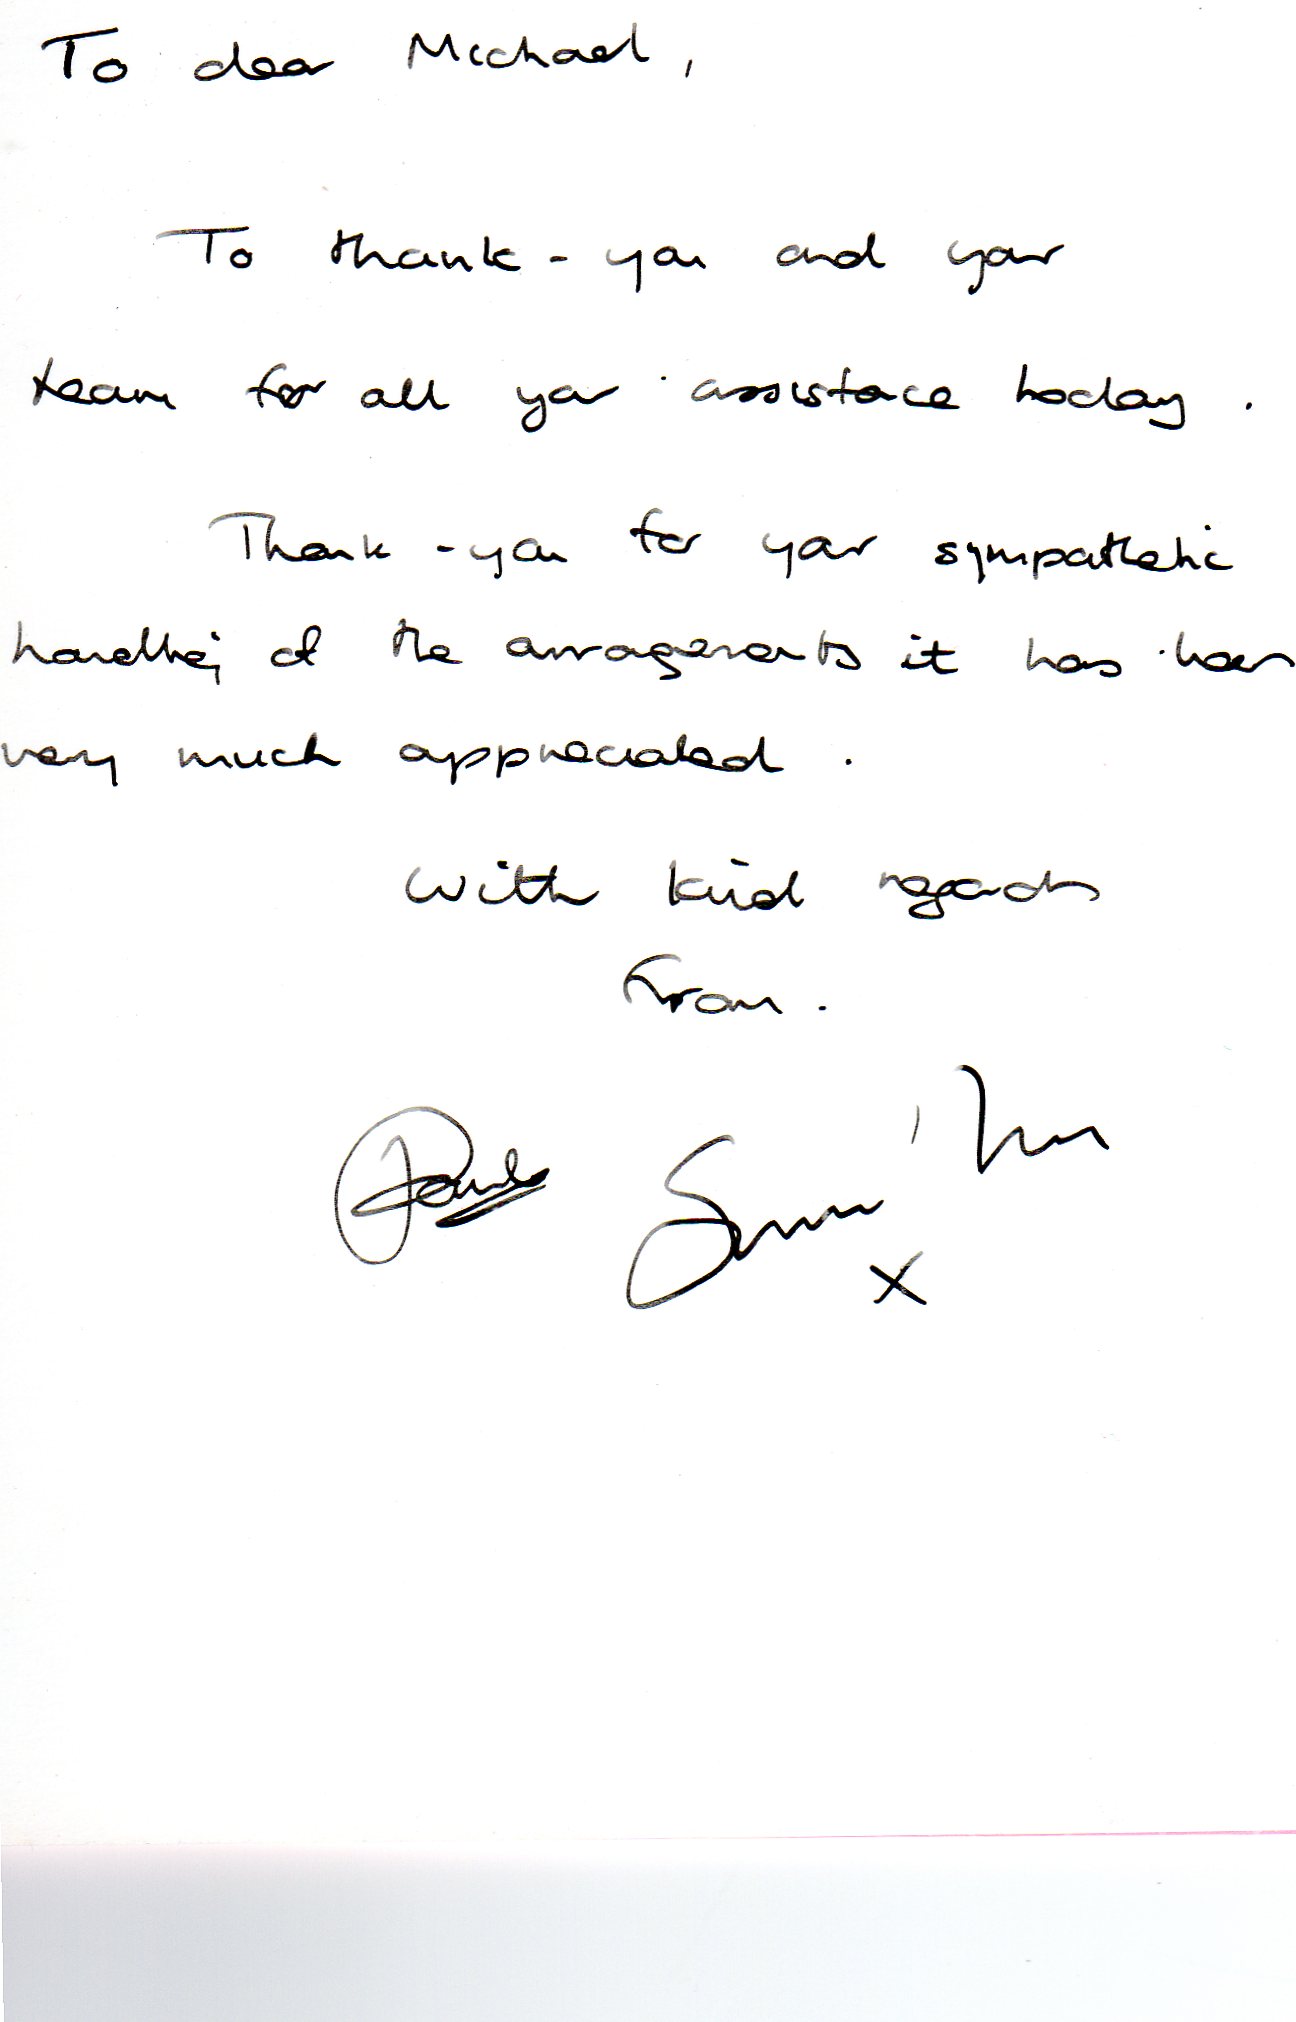 To dear Michael,
To thank-you and your
team for all your assistance today.
Thank-you for your sympathetic
handling of the arrangements it has been
very much appreciated.
With kind regards
From.
x